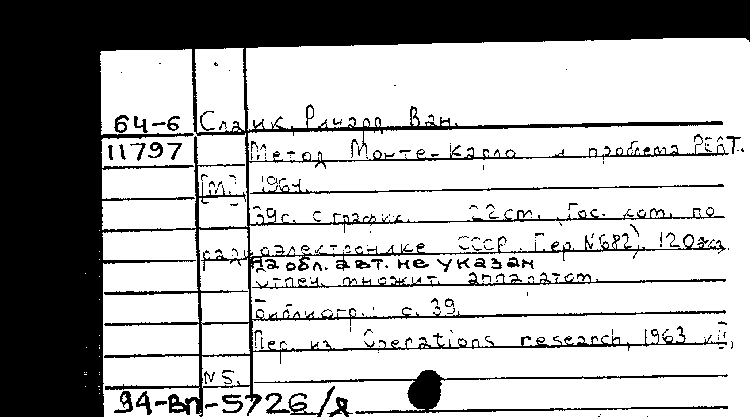 64-6 Слайк, Ричард Ван.
11797 Метод Монте-Карло и проблема PERT.
[М.], 1964.
39 с. с график. 22 см. (Гос. ком. по
радиоэлектронике СССР. Пер. N682). 120 экз.
На обл. авт. не указан
Отпеч. множит. аппаратом.
Библиогр.: с. 39.
Пер. из Operations research, 1963
N 5.
94-Вп-5726/я